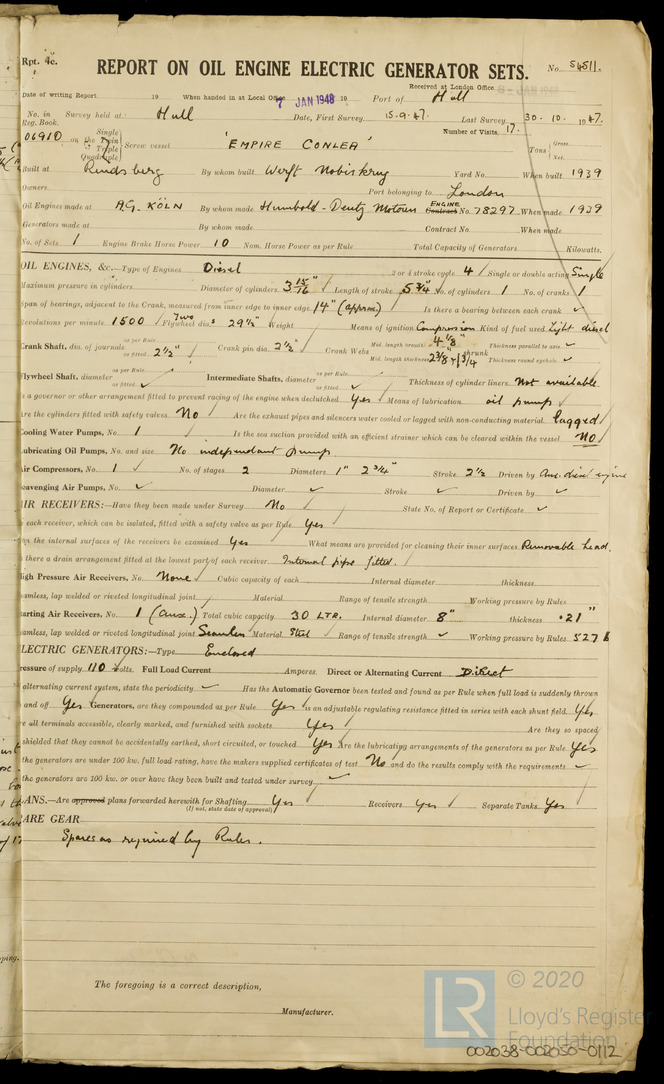 Rpt. 4c.
REPORT ON OIL ENGINE ELECTRIC GENERATOR SETS.
No. 54511.
Received at London Office
Date of writing Report 19 When handed in at Local Office 7 JAN 1948 19 Port of Hull
No. in Reg. Book. Survey held at Hull Date, First Survey 15.9.47. Last Survey 30.10.1947.
Number of Visits 17.
06910 on the Single Twin Triple Quadruple Screw vessel 'EMPIRE CONLEA' Tons Gross Net
Built at Rendsberg By whom built Werft Nobiskrug Yard No. When built 1939
Owners Port belonging to London
Oil Engines made at A.G. KÖLN By whom made Humbold-Deutz Motoren ENGINE Contract No. 78297 When made 1939
Generators made at By whom made Contract No. When made
No. of Sets 1 Engine Brake Horse Power 10 Nom. Horse Power as per Rule Total Capacity of Generators Kilowatts.
OIL ENGINES, &c.—Type of Engines Diesel 2 or 4 stroke cycle 4 Single or double acting Single
Maximum pressure in cylinders Diameter of cylinders 3 15/16" Length of stroke 5 3/4" No. of cylinders 1 No. of cranks 1
Span of bearings, adjacent to the Crank, measured from inner edge to inner edge 14" (approx) Is there a bearing between each crank ✓
Revolutions per minute 1500 Two Flywheel dia. 29 1/2" Weight Means of ignition Compression Kind of fuel used Light diesel
Crank Shaft, dia. of journals as per Rule as fitted 2 1/2" Crank pin dia. 2 1/2" Crank Webs Mid. length breadth 4 1/8" Mid. length thickness 2 3/8" + 1 3/4 shrunk Thickness parallel to axis ✓ Thickness round eyehole ✓
Flywheel Shaft, diameter as per Rule as fitted ✓ Intermediate Shafts, diameter as per Rule as fitted ✓ Thickness of cylinder liners Not available
Is a governor or other arrangement fitted to prevent racing of the engine when declutched Yes Means of lubrication oil pump
Are the cylinders fitted with safety valves No Are the exhaust pipes and silencers water cooled or lagged with non-conducting material lagged
Cooling Water Pumps, No. 1 Is the sea suction provided with an efficient strainer which can be cleared within the vessel No
Lubricating Oil Pumps, No. and size No independant pump.
Air Compressors, No. 1 No. of stages 2 Diameters 1" 2 3/4" Stroke 2 1/2 Driven by Aux. diesel engine
Scavenging Air Pumps, No. ✓ Diameter ✓ Stroke ✓ Driven by ✓
AIR RECEIVERS:—Have they been made under Survey No State No. of Report or Certificate ✓
Is each receiver, which can be isolated, fitted with a safety valve as per Rule Yes
Can the internal surfaces of the receivers be examined Yes What means are provided for cleaning their inner surfaces Removable head.
Is there a drain arrangement fitted at the lowest part of each receiver Internal pipe fitted.
High Pressure Air Receivers, No. None Cubic capacity of each Internal diameter thickness
Seamless, lap welded or riveted longitudinal joint Material Range of tensile strength Working pressure by Rules
Starting Air Receivers, No. 1 (Aux.) Total cubic capacity 30 LTR. Internal diameter 8" thickness .21"
Seamless, lap welded or riveted longitudinal joint Seamless Material Steel Range of tensile strength ✓ Working pressure by Rules 527
ELECTRIC GENERATORS:—Type Enclosed
Pressure of supply 110 volts. Full Load Current Amperes. Direct or Alternating Current Direct
alternating current system, state the periodicity ✓ Has the Automatic Governor been tested and found as per Rule when full load is suddenly thrown
and off Yes Generators, are they compounded as per Rule Yes is an adjustable regulating resistance fitted in series with each shunt field Yes
Are all terminals accessible, clearly marked, and furnished with sockets Yes Are they so spaced
shielded that they cannot be accidentally earthed, short circuited, or touched Yes Are the lubricating arrangements of the generators as per Rule Yes
the generators are under 100 kw. full load rating, have the makers supplied certificates of test No and do the results comply with the requirements ✓
the generators are 100 kw. or over have they been built and tested under survey ✓
PLANS.—Are approved plans forwarded herewith for Shafting Yes Receivers Yes Separate Tanks Yes
(If not, state date of approval)
SPARE GEAR
Spares as required by Rules.
The foregoing is a correct description,
Manufacturer.
© 2020
LR Lloyd's Register Foundation
002038-002050-0112